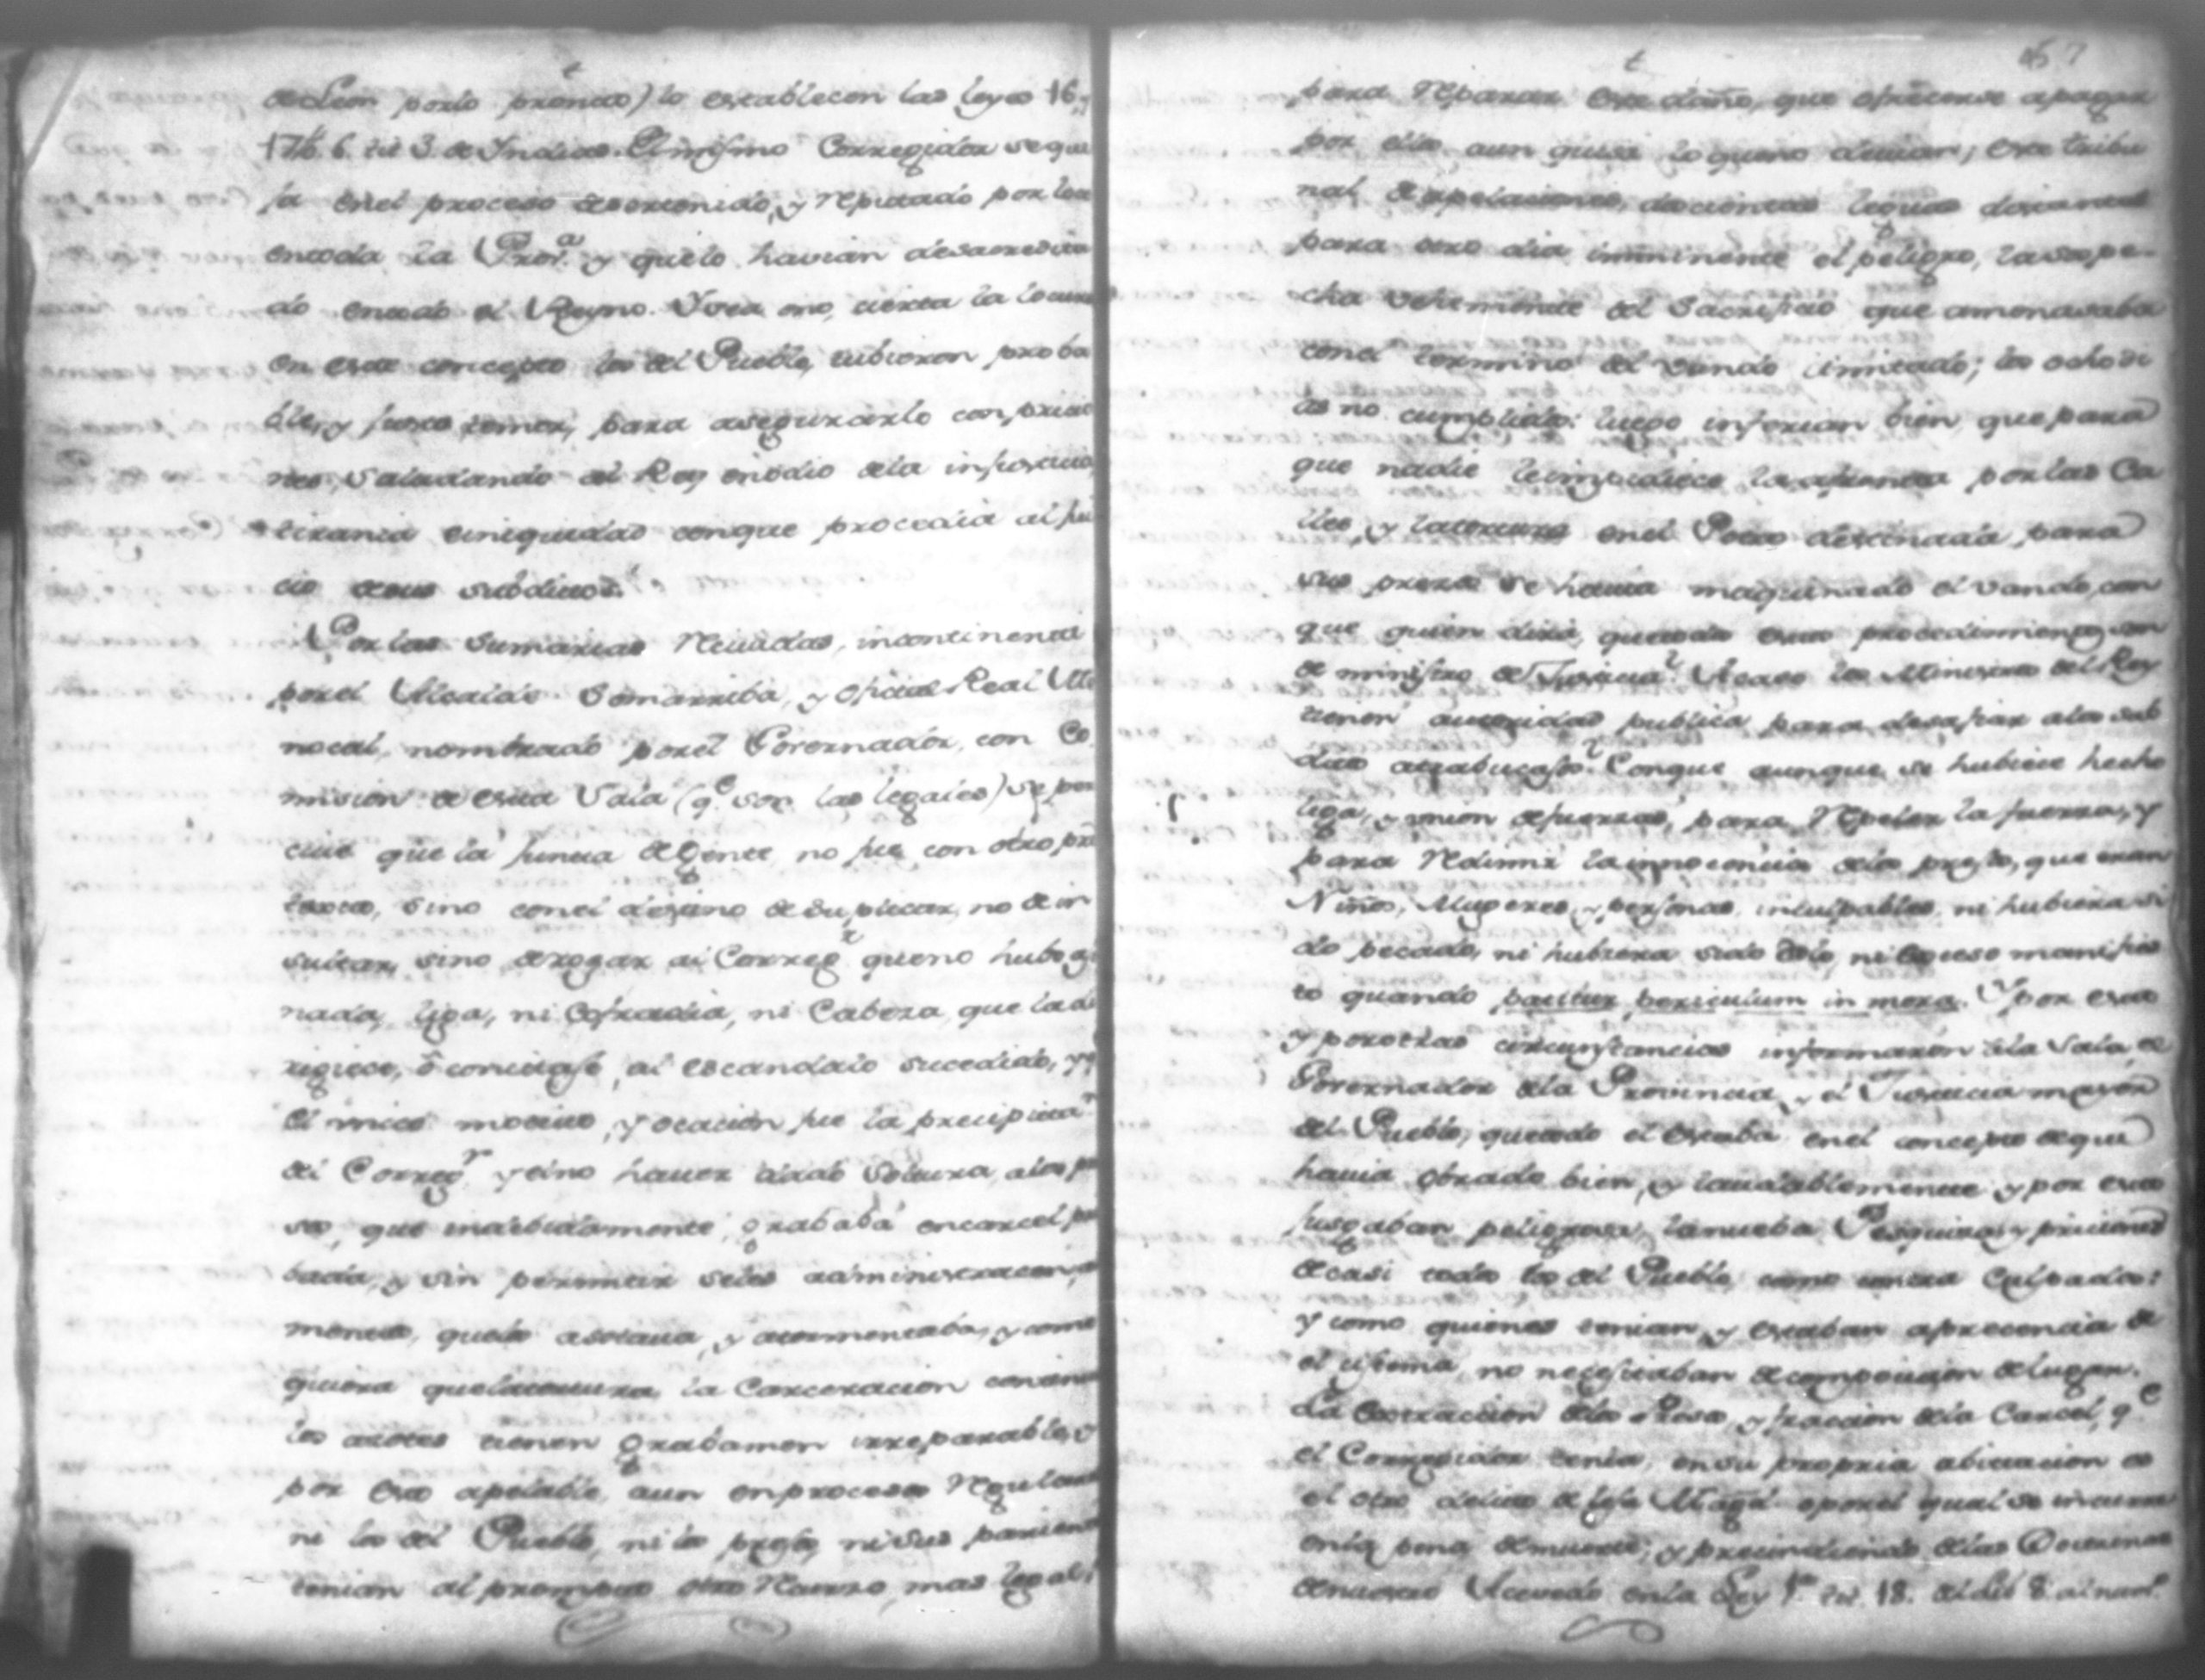 de Leon por lo pronto) lo establecen las leyes 16, y
17 lib. 6. tit 3. de Indias. El mismo Corregidor se que
ja en el proceso de ser tenido, y reputado por loco
en toda la Prov.ª y que lo havian desacredita
do en todo el Reyno. Sea o no, cierta la locura
en este concepto los del Pueblo, tubieron proba
ble, y justo temor, para asegurarlo con pricio
nes, saludando al Rey en odio de la injusticia,
tirania e iniquidad con que procedia al jui
cio de sus subditos.
Por las sumarias recividas, incontinenti
por el Alcalde Somarriba, y oficial Real
nombrado por el Governador, con Co
mision de esta Sala (q.e son las legales) se per
cive que la junta de Gente, no fue con otro pre
texto, sino con el destino de suplicar, no de in
sultar, sino de rogar al Correg.r que no hubo
nada, liga, ni Cofradia, ni Cabeza, que la di
rigiese, ó concitase, al escandalo sucedido, y q
el unico motivo, y ocacion fue la precipita.n
del Correg.r y el no haver dado soltura, a los pre
sos, que indebidamente, grababa en carcel pri
bada, y sin permitir se les administracen, a
mentos, que los asotava, y atormentaba, y como
quiera que la tortura, la Carceracion con
los azotes tienen grabamen irreparable, y
por eso apelable, aun en procesos regulares
ni los del Pueblo, ni los presos, ni sus parientes
tenian al prompto otro recurso, mas legal,
57
para reparar este daño, que ofrecerse a pagar
por ellos aun quisa lo que no devian; este tribu
nal de apelaciones, docientas leguas distante
para otro dia imminente el peligro, la sospe-
cha vehemente del Sacrificio que amenasaba
con el termino del vando limitado; los ocho di
as no cumplidos: luego inferian bien, que para
que nadie le impidiece la afrenta por las Ca
lles, y la tortura en el Potro destinada, para
sus presos se havia maquinado el vando, con
que quien dirá, que todos estos procedimientos son
de ministro de Justicia? Acaso los Ministros del Rey
tienen autoridad publica para desafiar a los sub
ditos a trabucasos? Conque aunque se hubiese hecho
liga, y union de fuerzas, para repeler la fuerza, y
para redimir la innocencia de los presos, que eran
Niños, Mugeres, y personas inculpables, ni hubiera si
do pecado, ni hubiera sido dolo, ni exceso manifies
to quando patitur periculum in mora. Y por esto
y por otras circunstancias informaron á la Sala, el
Governador de la Provincia, y el Justicia mayor
del Pueblo, que todo el estaba en el concepto de que
havia obrado bien, y laudablemente y por esto
jusgaban peligrosa, la nueba Pesquisa, y priciones
de casi todos los del Pueblo, como contra Culpados:
y como quienes tenian, y estaban a precencia de
el sistema, no necesitaban de composicion de lugar.
La extraccion de los Presos, y fraccion de la Carcel, q.e
el Corregidor tenia, en su propria abitacion es
el otro delito de lesa Mag.d por el qual se incurre
en la pena de muerte; y prescindiendo de las Doctrinas
de nuestro Acevedo en la Ley 1.ª tit. 18. del Lib 8. al num.